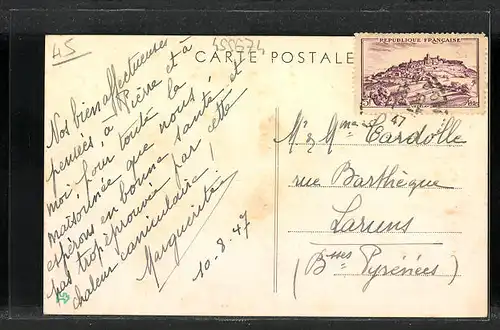 45
450674
CARTE POSTALE
REPUBLIQUE FRANÇAISE
Nos bien affectueuses
pensées, à Pierre et à
moi, pour toute la
maisonnée que nous
espérons en bonne santé et
pas trop éprouvée par cette
chaleur caniculaire !
Marguerite
10.8.47
47
Mr & Mme Cardolle
rue Barthèque
Laruns
(Bses Pyrénées)